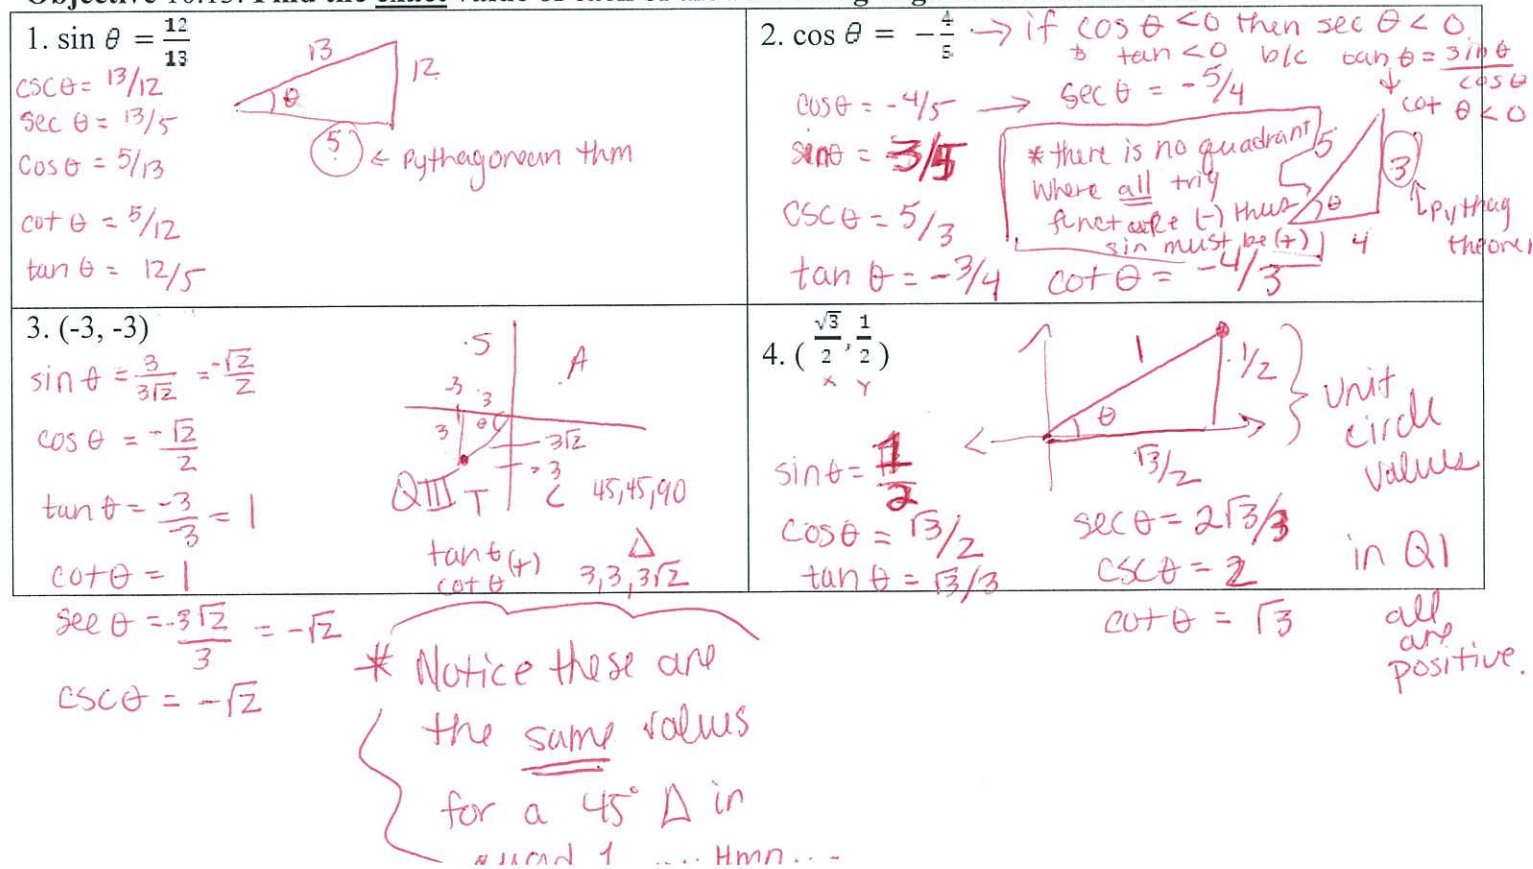 1. sin θ = 12/13
13
12
θ
5
← Pythagorean thm
cscθ = 13/12
sec θ = 13/5
cos θ = 5/13
cot θ = 5/12
tan θ = 12/5
2. cos θ = - 4/5 → if cos θ < 0 then sec θ < 0
tan < 0 b/c tan θ = sin θ/cos θ
cot θ < 0
cosθ = -4/5 → sec θ = -5/4
sinθ = 3/5
cscθ = 5/3
tan θ = -3/4 cot θ = -4/3
* there is no quadrant
where all trig
funct are (-) thus
sin must be (+)
5
3
θ
4
Pythag
3. (-3, -3)
sin θ = 3/3√2 = -√2/2
cos θ = -√2/2
tan θ = -3/-3 = 1
cot θ = 1
sec θ = -3√2/3 = -√2
csc θ = -√2
S
A
-3
3
3
θ
3√2
-3
QIII T C 45, 45, 90
Δ
tan θ (+)
cot θ
3, 3, 3√2
* Notice these are
the same values
for a 45° Δ in
quad 1 .... Hmn...
4. (√3/2, 1/2)
x y
1
1/2
θ
√3/2
unit
circle
values
sin θ = 1/2
cos θ = √3/2
tan θ = √3/3
sec θ = 2√3/3
csc θ = 2
cot θ = √3
in Q1
all
are
positive.